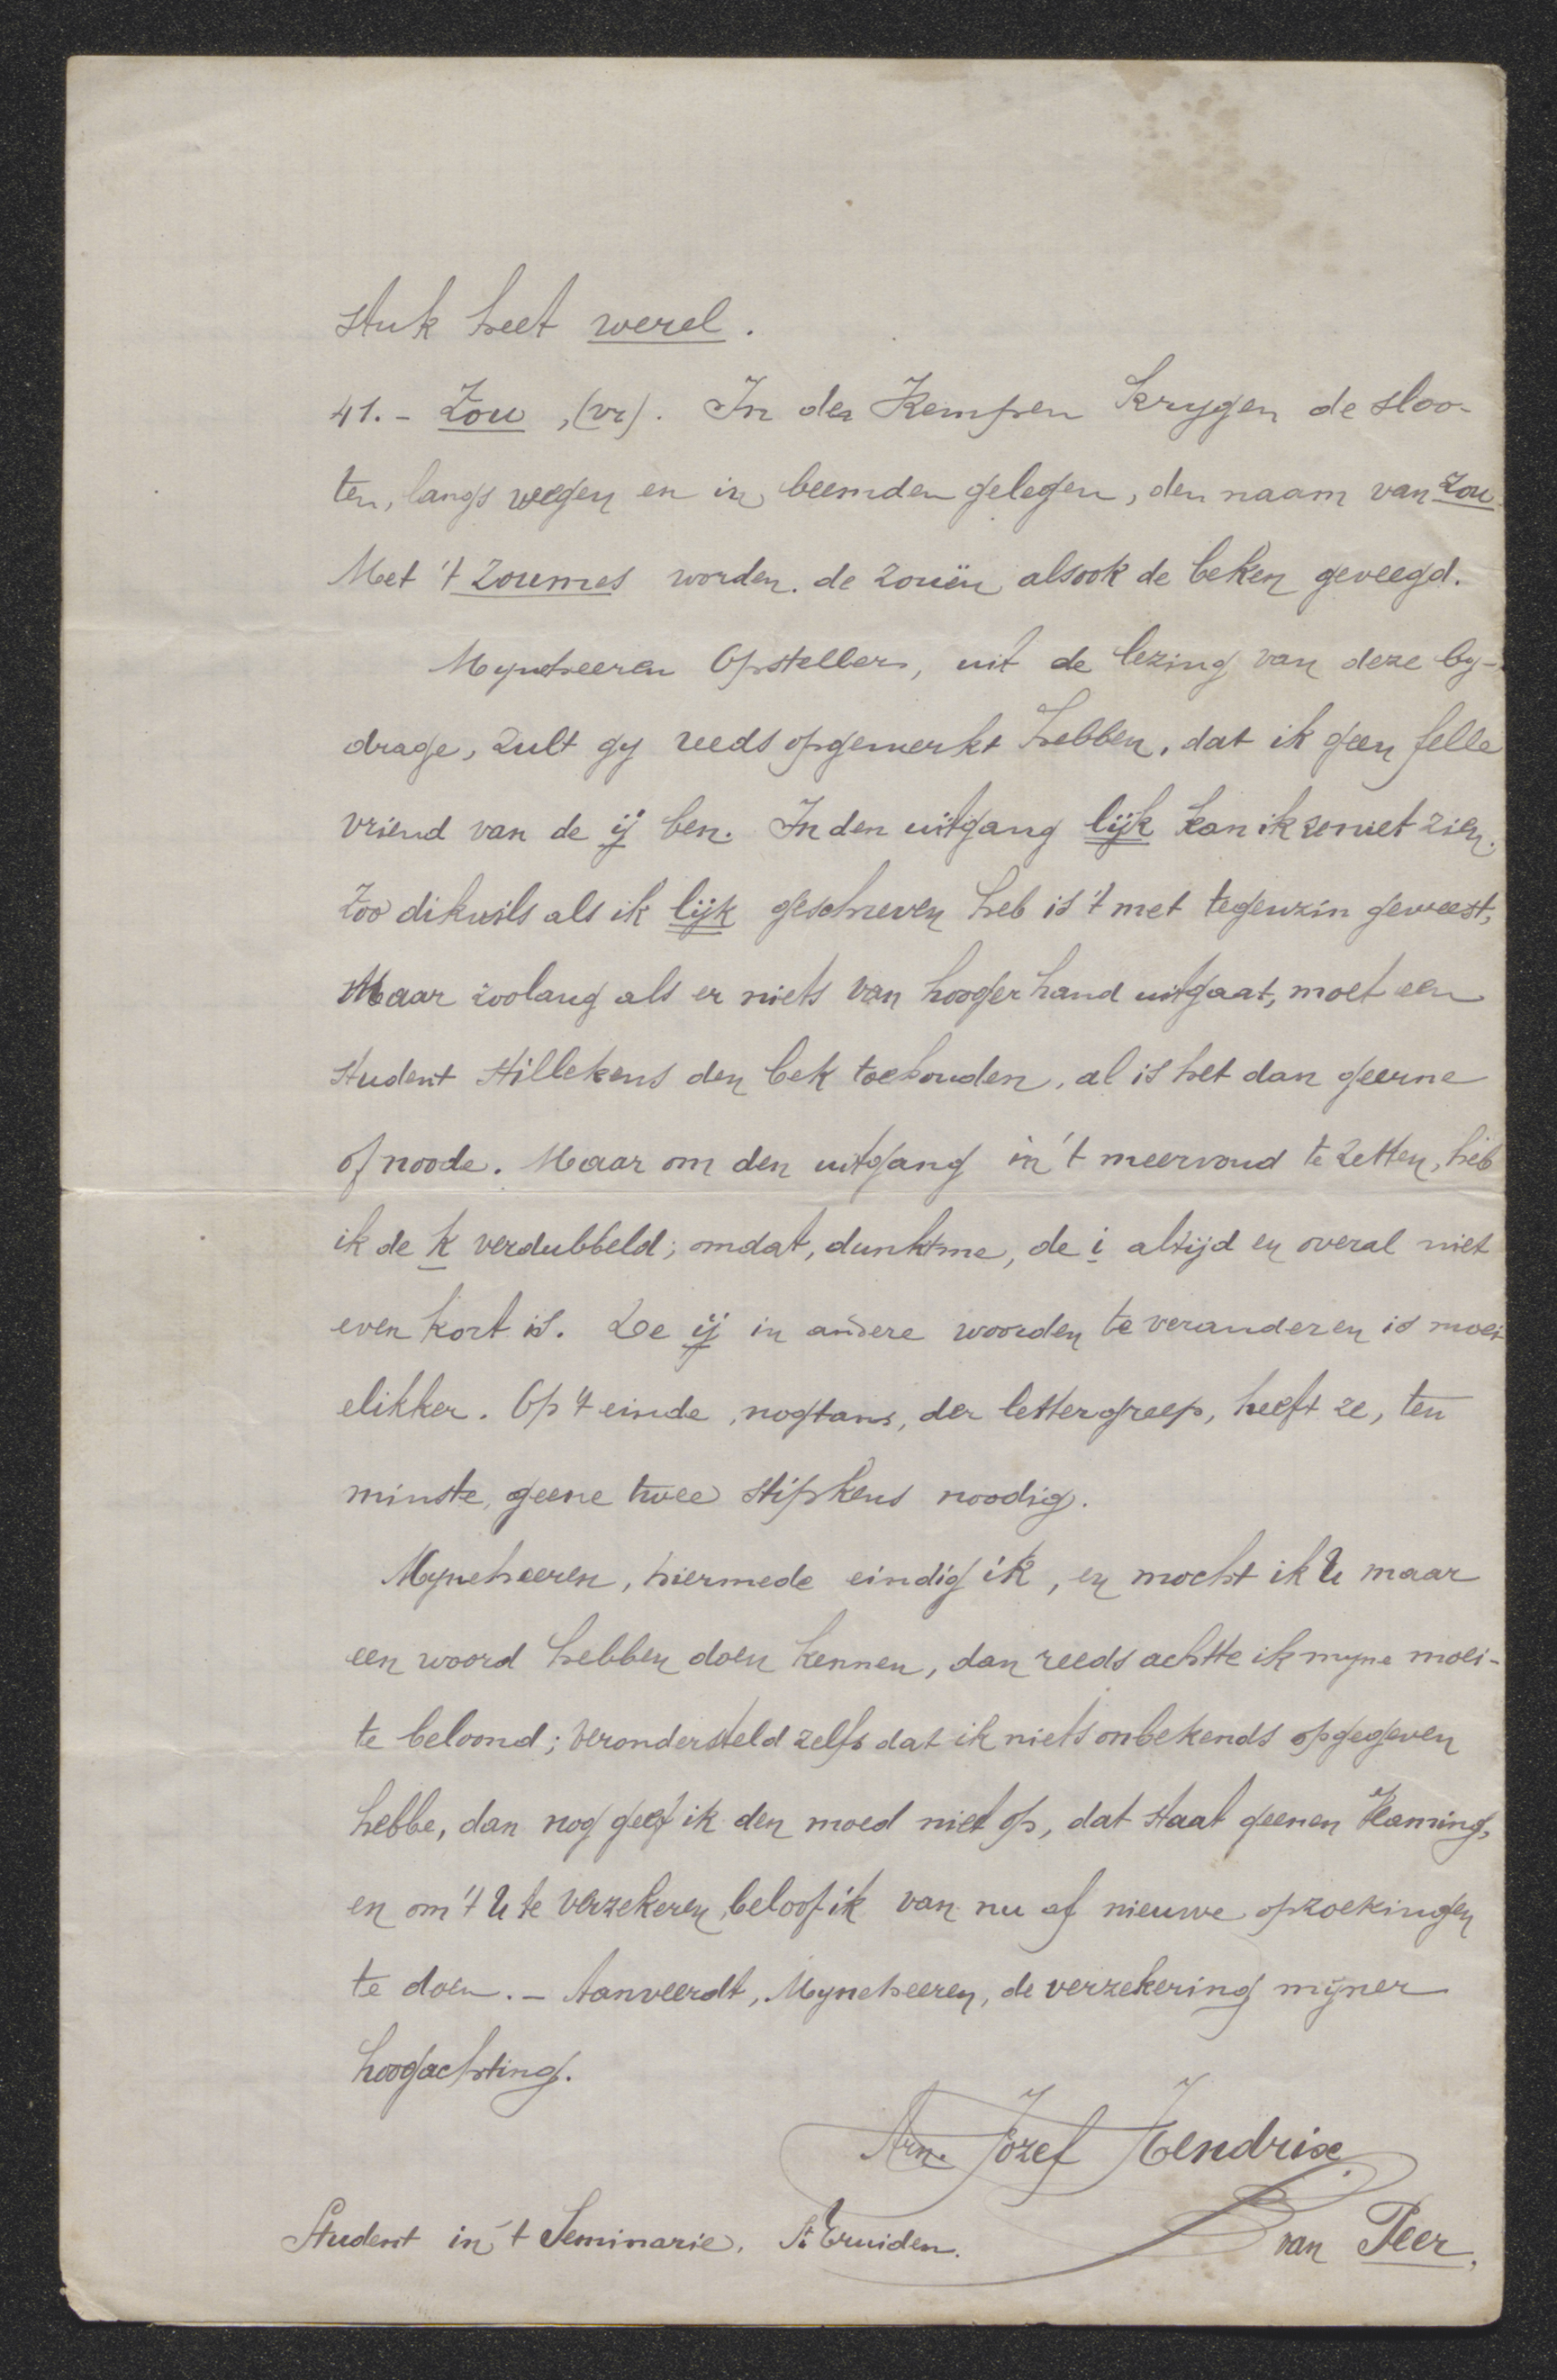 stuk heet werel.
41. - Zou, (vr). In de Kempen krygen de sloo-
ten, langs wegen en in beemden gelegen, den naam van Zou.
Met 't zoumes worden de zouën alsook de beken geveegd.
Myneheeren Opstellers, uit de lezing van deze by-
drage, zult gy reeds opgemerkt hebben, dat ik geen felle
vriend van de ij ben. In den uitgang lijk kan ik ze niet zien.
Zoo dikwils als ik lijk geschreven heb is 't met tegenzin geweest;
Maar zoolang als er niets van hooger hand uitgaat, moet een
student stillekens den bek toehouden, al is het dan geerne
of noode. Maar om den uitgang in 't meervoud te zetten, heb
ik de k verdubbeld; omdat, dunkt me, de i altijd en overal niet
even kort is. De ij in andere woorden te veranderen is moei
elikker. Op 't einde, nogtans, der lettergreep, heeft ze, ten
minste, geene twee stipkens noodig.
Myneheeren, hiermede eindig ik, en mocht ik U maar
een woord hebben doen kennen, dan reeds achtte ik myne moei-
te beloond; verondersteld zelfs dat ik niets onbekends opgegeven
hebbe, dan nog geef ik den moed niet op, dat staat geenen Vlaming,
en om 't U te verzekeren, beloof ik van nu af nieuwe opzoekingen
te doen. - Aanveerdt, Myneheeren, de verzekering mijner
hoogachting.
Arn. Jozef Hendrix
Student in 't Seminarie, St Truiden. van Peer,